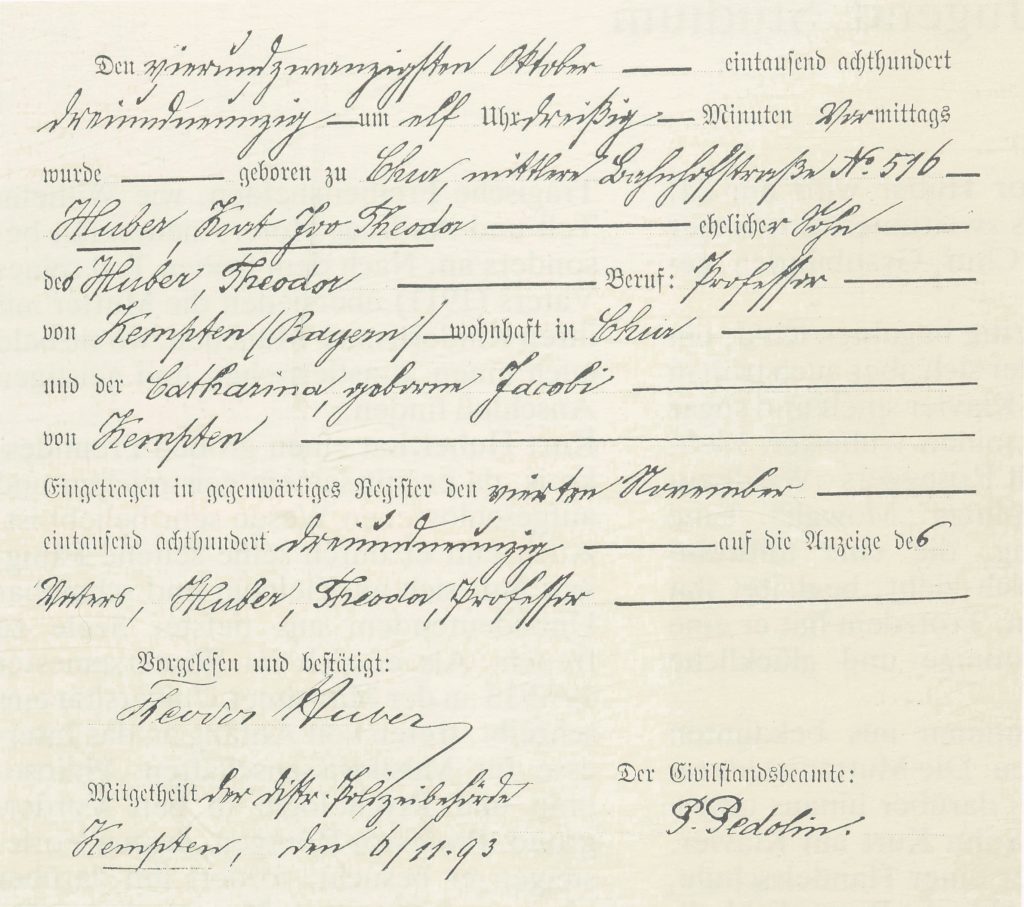 Den vierundzwanzigsten Oktober — eintausend achthundert
dreiundneunzig — um elf Uhr dreißig — Minuten Vormittags
wurde — geboren zu Chur, mittlere Bahnhofstraße No. 516 —
Huber, Kurt Ivo Theodor — ehelicher Sohn —
des Huber, Theodor — Beruf: Professor —
von Kempten (Bayern) — wohnhaft in Chur —
und der Catharina, geborne Jacobi —
von Kempten —
Eingetragen in gegenwärtiges Register den vierten November —
eintausend achthundert dreiundneunzig — auf die Anzeige des
Vaters, Huber, Theodor, Professor —
Vorgelesen und bestätigt:
Theodor Huber
Der Civilstandsbeamte:
Mitgetheilt der distr. Polizeibehörde
P. Pedolin.
Kempten, den 6/11.93